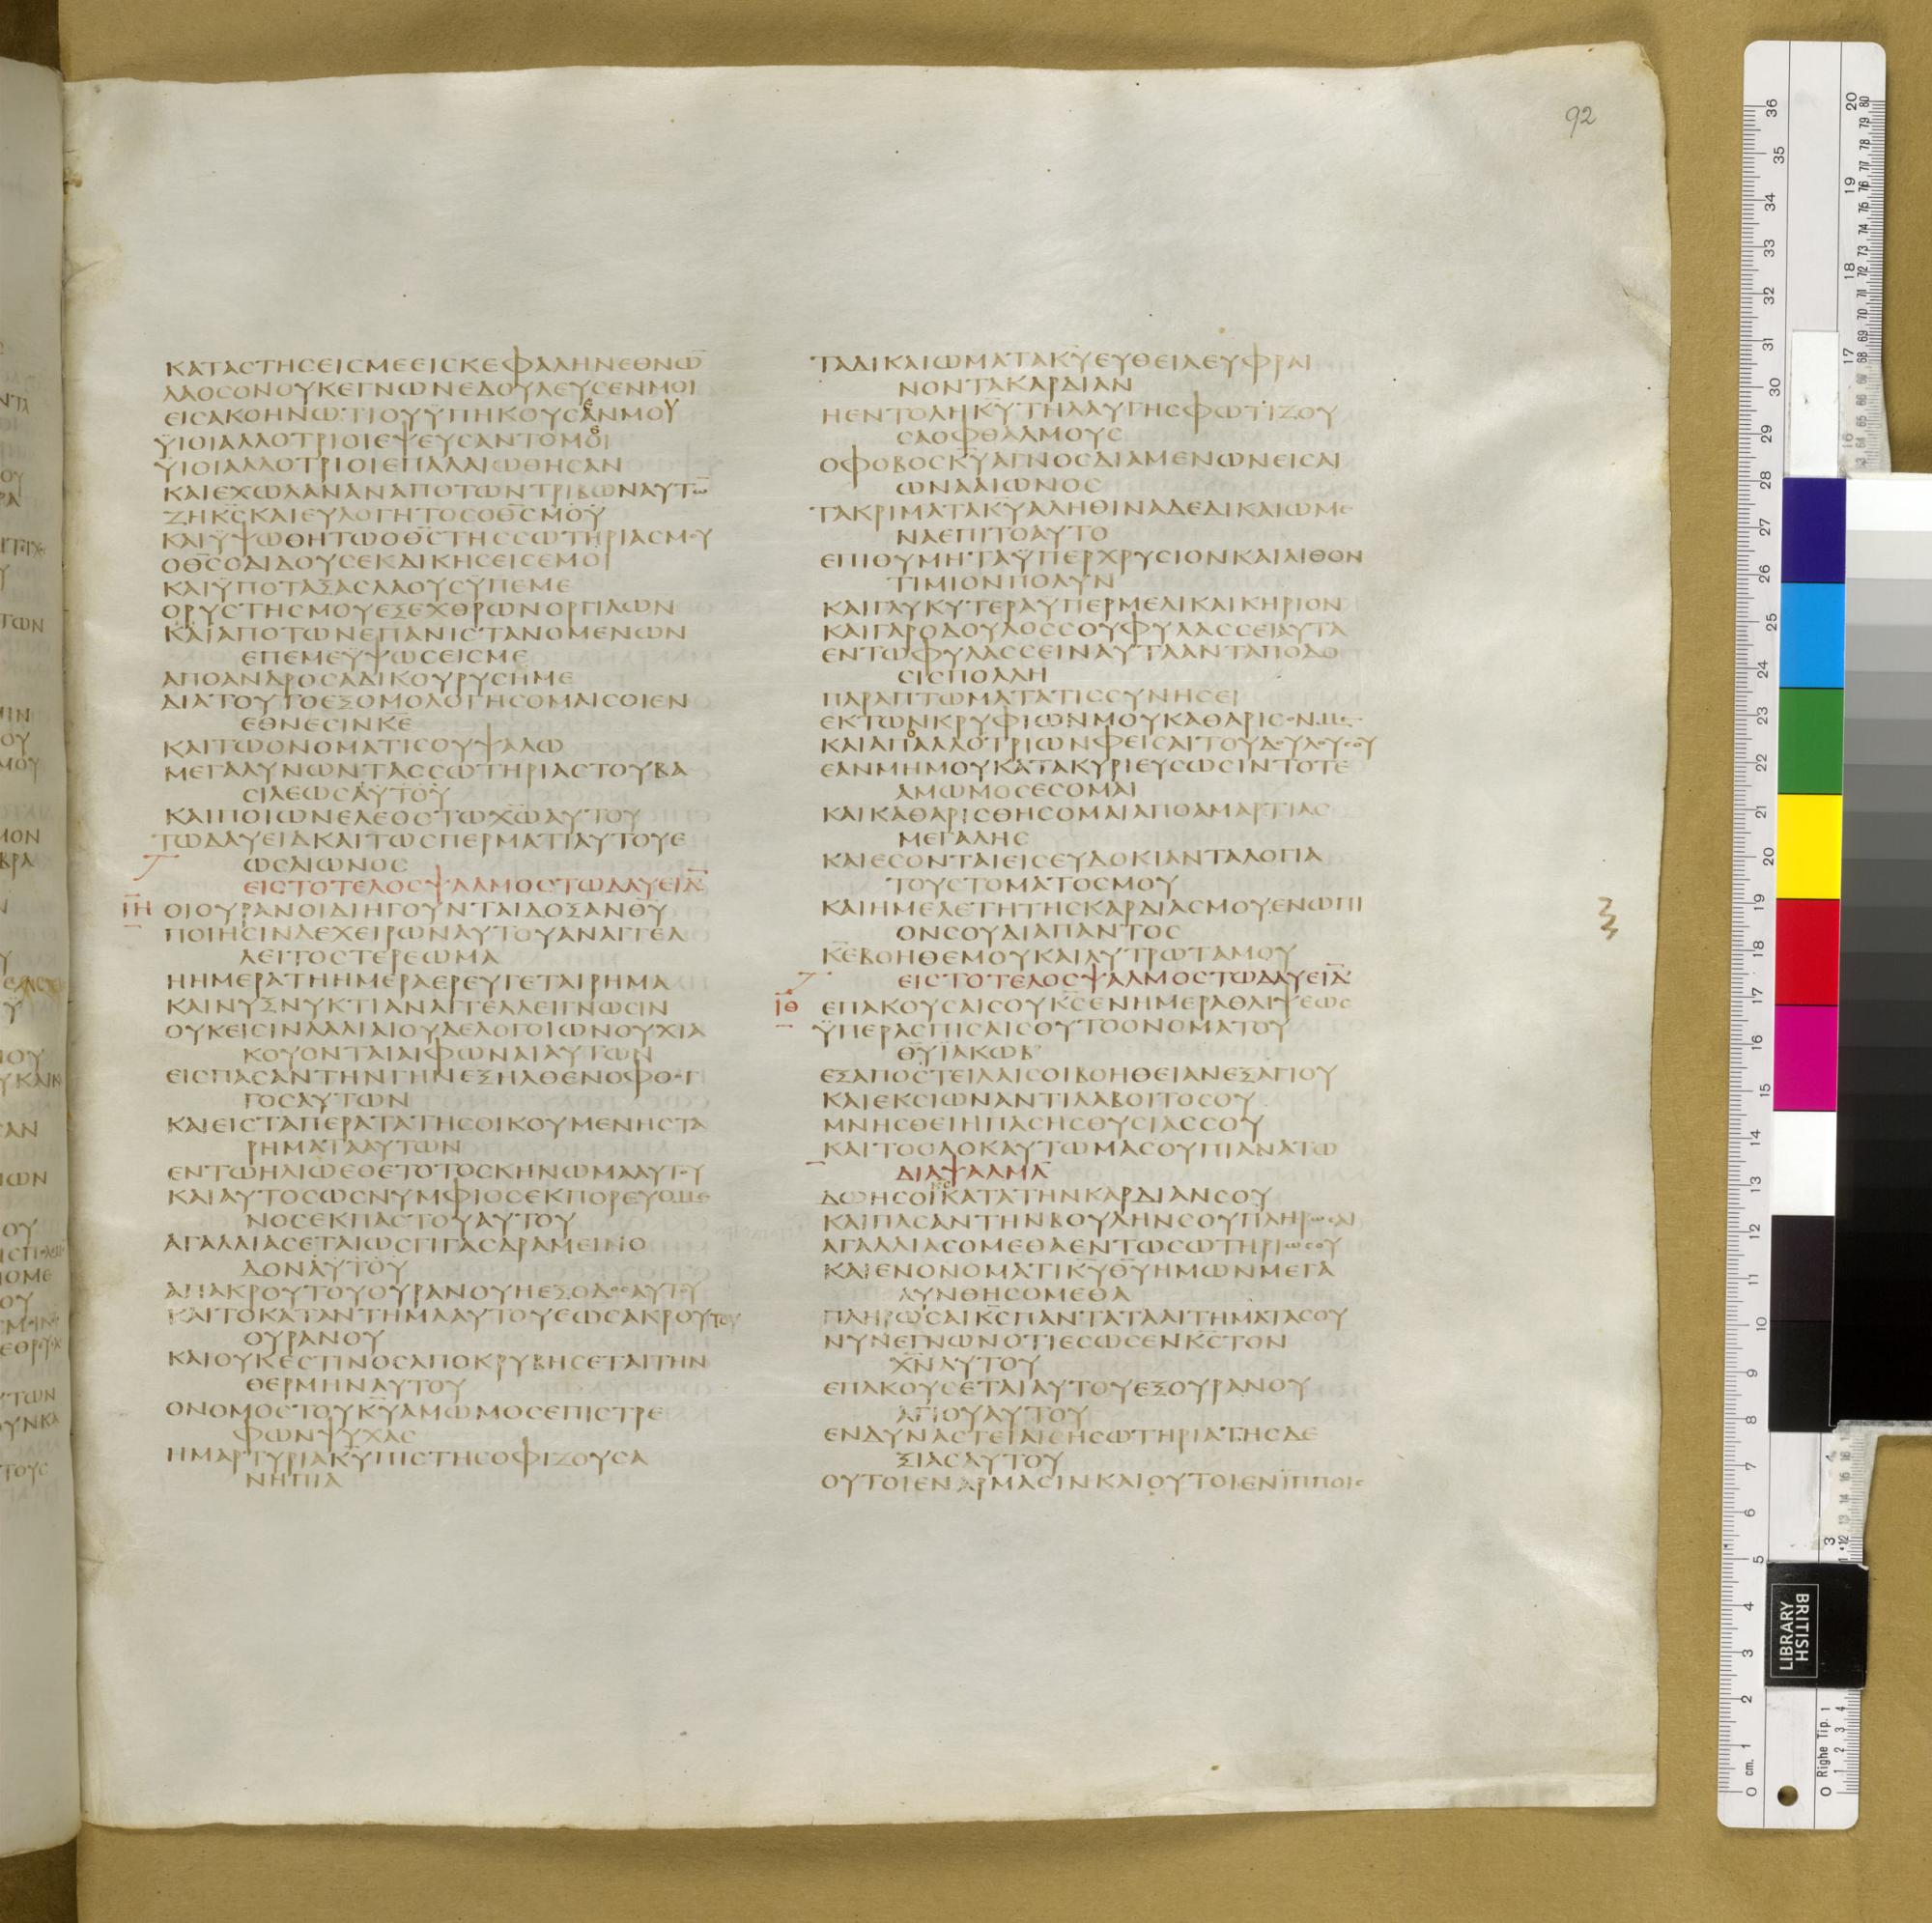 92
ΚΑΤΑϹΤΗϹΕΙϹΜΕΕΙϹΚΕΦΑΛΗΝΕΘΝΩ̅
ΛΑΟϹΟΝΟΥΚΕΓΝΩΝΕΔΟΥΛΕΥϹΕΝΜΟΙ
ΕΙϹΑΚΟΗΝΩΤΙΟΥΫΠΗΚΟΥϹΑΝΜΟΥ
ΫΙΟΙΑΛΛΟΤΡΙΟΙΕΨΕΥϹΑΝΤΟΜΟΙ
ΫΙΟΙΑΛΛΟΤΡΙΟΙΕΠΑΛΑΙΩΘΗϹΑΝ
ΚΑΙΕΧΩΛΑΝΑΝΑΠΟΤΩΝΤΡΙΒΩΝΑΥΤΩ̅
ΖΗΚ̅Ϲ̅ΚΑΙΕΥΛΟΓΗΤΟϹΟΘ̅Ϲ̅ΜΟΥ
ΚΑΙΫΨΩΘΗΤΩΟΘ̅Ϲ̅ΤΗϹϹΩΤΗΡΙΑϹΜΟΥ
ΟΘ̅Ϲ̅ΟΔΙΔΟΥϹΕΚΔΙΚΗϹΕΙϹΕΜΟΙ
ΚΑΙΫΠΟΤΑΞΑϹΛΑΟΥϹΫΠΕΜΕ
ΟΡΥϹΤΗϹΜΟΥΕΞΕΧΘΡΩΝΟΡΓΙΛΩΝ
ΚΑΙΑΠΟΤΩΝΕΠΑΝΙϹΤΑΝΟΜΕΝΩΝ
ΕΠΕΜΕΫΨΩϹΕΙϹΜΕ
ΑΠΟΑΝΔΡΟϹΑΔΙΚΟΥΡΥϹΗΜΕ
ΔΙΑΤΟΥΤΟΕΞΟΜΟΛΟΓΗϹΟΜΑΙϹΟΙΕΝ
ΕΘΝΕϹΙΝΚΕ
ΚΑΙΤΩΟΝΟΜΑΤΙϹΟΥΨΑΛΩ
ΜΕΓΑΛΥΝΩΝΤΑϹϹΩΤΗΡΙΑϹΤΟΥΒΑ
ϹΙΛΕΩϹΑΥΤΟΥ
ΚΑΙΠΟΙΩΝΕΛΕΟϹΤΩΧ̅Ω̅ΑΥΤΟΥ
ΤΩΔΑΥΕΙΔΚΑΙΤΩϹΠΕΡΜΑΤΙΑΥΤΟΥΕ
ΩϹΑΙΩΝΟϹ
ΕΙϹΤΟΤΕΛΟϹΨΑΛΜΟϹΤΩΔΑΥΕΙΔ
ΙΗ ΟΙΟΥΡΑΝΟΙΔΙΗΓΟΥΝΤΑΙΔΟΞΑΝΘ̅Υ̅
ΠΟΙΗϹΙΝΔΕΧΕΙΡΩΝΑΥΤΟΥΑΝΑΓΓΕΛ
ΛΕΙΤΟϹΤΕΡΕΩΜΑ
ΗΗΜΕΡΑΤΗΗΜΕΡΑΕΡΕΥΓΕΤΑΙΡΗΜΑ
ΚΑΙΝΥΞΝΥΚΤΙΑΝΑΓΓΕΛΛΕΙΓΝΩϹΙΝ
ΟΥΚΕΙϹΙΝΛΑΛΙΑΙΟΥΔΕΛΟΓΟΙΩΝΟΥΧΙΑ
ΚΟΥΟΝΤΑΙΑΙΦΩΝΑΙΑΥΤΩΝ
ΕΙϹΠΑϹΑΝΤΗΝΓΗΝΕΞΗΛΘΕΝΟΦΘΟΓ
ΓΟϹΑΥΤΩΝ
ΚΑΙΕΙϹΤΑΠΕΡΑΤΑΤΗϹΟΙΚΟΥΜΕΝΗϹΤΑ
ΡΗΜΑΤΑΑΥΤΩΝ
ΕΝΤΩΗΛΙΩΕΘΕΤΟΤΟϹΚΗΝΩΜΑΑΥΤΟΥ
ΚΑΙΑΥΤΟϹΩϹΝΥΜΦΙΟϹΕΚΠΟΡΕΥΟΜΕ
ΝΟϹΕΚΠΑϹΤΟΥΑΥΤΟΥ
ΑΓΑΛΛΙΑϹΕΤΑΙΩϹΓΙΓΑϹΔΡΑΜΕΙΝΟ
ΔΟΝΑΥΤΟΥ
ΑΠΑΚΡΟΥΤΟΥΟΥΡΑΝΟΥΗΕΞΟΔΟϹΑΥΤΟΥ
ΚΑΙΤΟΚΑΤΑΝΤΗΜΑΑΥΤΟΥΕΩϹΑΚΡΟΥΤΟΥ
ΟΥΡΑΝΟΥ
ΚΑΙΟΥΚΕϹΤΙΝΟϹΑΠΟΚΡΥΒΗϹΕΤΑΙΤΗΝ
ΘΕΡΜΗΝΑΥΤΟΥ
ΟΝΟΜΟϹΤΟΥΚ̅Υ̅ΑΜΩΜΟϹΕΠΙϹΤΡΕ
ΦΩΝΨΥΧΑϹ
ΗΜΑΡΤΥΡΙΑΚ̅Υ̅ΠΙϹΤΗϹΟΦΙΖΟΥϹΑ
ΝΗΠΙΑ
ΤΑΔΙΚΑΙΩΜΑΤΑΚ̅Υ̅ΕΥΘΕΙΑΕΥΦΡΑΙ
ΝΟΝΤΑΚΑΡΔΙΑΝ
ΗΕΝΤΟΛΗΚ̅Υ̅ΤΗΛΑΥΓΗϹΦΩΤΙΖΟΥ
ϹΑΟΦΘΑΛΜΟΥϹ
ΟΦΟΒΟϹΚ̅Υ̅ΑΓΝΟϹΔΙΑΜΕΝΩΝΕΙϹΑΙ
ΩΝΑΑΙΩΝΟϹ
ΤΑΚΡΙΜΑΤΑΚ̅Υ̅ΑΛΗΘΙΝΑΔΕΔΙΚΑΙΩΜΕ
ΝΑΕΠΙΤΟΑΥΤΟ
ΕΠΙΘΥΜΗΤΑΫΠΕΡΧΡΥϹΙΟΝΚΑΙΛΙΘΟΝ
ΤΙΜΙΟΝΠΟΛΥΝ
ΚΑΙΓΛΥΚΥΤΕΡΑΥΠΕΡΜΕΛΙΚΑΙΚΗΡΙΟΝ
ΚΑΙΓΑΡΟΔΟΥΛΟϹϹΟΥΦΥΛΑϹϹΕΙΑΥΤΑ
ΕΝΤΩΦΥΛΑϹϹΕΙΝΑΥΤΑΑΝΤΑΠΟΔΟ
ϹΙϹΠΟΛΛΗ
ΠΑΡΑΠΤΩΜΑΤΑΤΙϹϹΥΝΗϹΕΙ
ΕΚΤΩΝΚΡΥΦΙΩΝΜΟΥΚΑΘΑΡΙϹΟΝΜΕ
ΚΑΙΑΠΑΛΛΟΤΡΙΩΝΦΕΙϹΑΙΤΟΥΔΟΥΛΟΥϹΟΥ
ΕΑΝΜΗΜΟΥΚΑΤΑΚΥΡΙΕΥϹΩϹΙΝΤΟΤΕ
ΑΜΩΜΟϹΕϹΟΜΑΙ
ΚΑΙΚΑΘΑΡΙϹΘΗϹΟΜΑΙΑΠΟΑΜΑΡΤΙΑϹ
ΜΕΓΑΛΗϹ
ΚΑΙΕϹΟΝΤΑΙΕΙϹΕΥΔΟΚΙΑΝΤΑΛΟΓΙΑ
ΤΟΥϹΤΟΜΑΤΟϹΜΟΥ
ΚΑΙΗΜΕΛΕΤΗΤΗϹΚΑΡΔΙΑϹΜΟΥΕΝΩΠΙ
ΟΝϹΟΥΔΙΑΠΑΝΤΟϹ
Κ̅Ε̅ΒΟΗΘΕΜΟΥΚΑΙΛΥΤΡΩΤΑΜΟΥ
ΕΙϹΤΟΤΕΛΟϹΨΑΛΜΟϹΤΩΔΑΥΕΙΔ
ΙΘ ΕΠΑΚΟΥϹΑΙϹΟΥΚ̅Ϲ̅ΕΝΗΜΕΡΑΘΛΙΨΕΩϹ
ΫΠΕΡΑϹΠΙϹΑΙϹΟΥΤΟΟΝΟΜΑΤΟΥ
Θ̅Υ̅ΪΑΚΩΒ
ΕΞΑΠΟϹΤΕΙΛΑΙϹΟΙΒΟΗΘΕΙΑΝΕΞΑΓΙΟΥ
ΚΑΙΕΚϹΙΩΝΑΝΤΙΛΑΒΟΙΤΟϹΟΥ
ΜΝΗϹΘΕΙΗΠΑϹΗϹΘΥϹΙΑϹϹΟΥ
ΚΑΙΤΟΟΛΟΚΑΥΤΩΜΑϹΟΥΠΙΑΝΑΤΩ
ΔΙΑΨΑΛΜΑ
ΔΩΗϹΟΙΚΑΤΑΤΗΝΚΑΡΔΙΑΝϹΟΥ
ΚΑΙΠΑϹΑΝΤΗΝΒΟΥΛΗΝϹΟΥΠΛΗΡΩϹΑΙ
ΑΓΑΛΛΙΑϹΟΜΕΘΑΕΝΤΩϹΩΤΗΡΙΩϹΟΥ
ΚΑΙΕΝΟΝΟΜΑΤΙΚ̅Υ̅Θ̅Υ̅ΗΜΩΝΜΕΓΑ
ΛΥΝΘΗϹΟΜΕΘΑ
ΠΛΗΡΩϹΑΙΚ̅Ϲ̅ΠΑΝΤΑΤΑΑΙΤΗΜΑΤΑϹΟΥ
ΝΥΝΕΓΝΩΝΟΤΙΕϹΩϹΕΝΚ̅Ϲ̅ΤΟΝ
Χ̅Ν̅ΑΥΤΟΥ
ΕΠΑΚΟΥϹΕΤΑΙΑΥΤΟΥΕΞΟΥΡΑΝΟΥ
ΑΓΙΟΥΑΥΤΟΥ
ΕΝΔΥΝΑϹΤΕΙΑΙϹΗϹΩΤΗΡΙΑΤΗϹΔΕ
ΞΙΑϹΑΥΤΟΥ
ΟΥΤΟΙΕΝΑΡΜΑϹΙΝΚΑΙΟΥΤΟΙΕΝΪΠΠΟΙϹ
BRITISH
LIBRARY